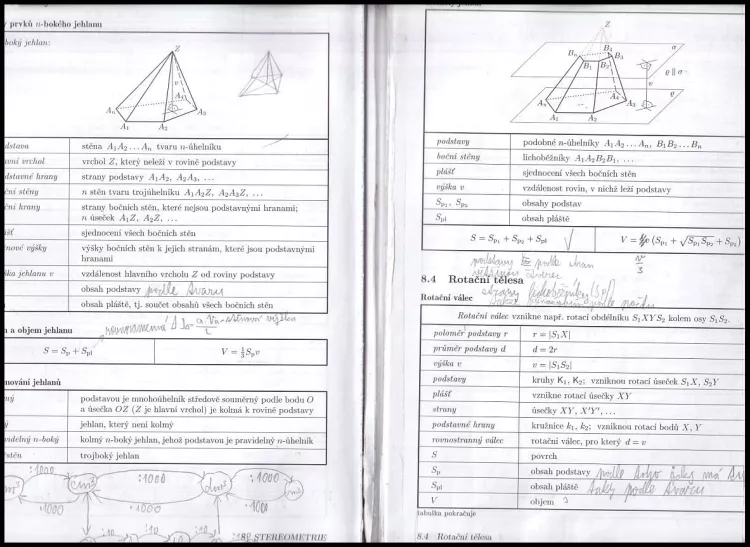 y prvků n-bokého jehlanu
boký jehlan:
Z
v
Aₙ
A₄
A₃
A₁
A₂
dstava
stěna A₁A₂…Aₙ tvaru n-úhelníku
vní vrchol
vrchol Z, který neleží v rovině podstavy
dstavné hrany
strany podstavy A₁A₂, A₂A₃, …
ční stěny
n stěn tvaru trojúhelníku A₁A₂Z, A₂A₃Z, …
ční hrany
strany bočních stěn, které nejsou podstavnými hranami;
n úseček A₁Z, A₂Z, …
šť
sjednocení všech bočních stěn
nové výšky
výšky bočních stěn k jejich stranám, které jsou podstavnými
hranami
ška jehlanu v
vzdálenost hlavního vrcholu Z od roviny podstavy
obsah podstavy podle tvaru
obsah pláště, tj. součet obsahů všech bočních stěn
h a objem jehlanu
S = Sₚ + Sₚₗ
V = ⅓Sₚv
menování jehlanů
mý
podstavou je mnohoúhelník středově souměrný podle bodu O
a úsečka OZ (Z je hlavní vrchol) je kolmá k rovině podstavy
ý
jehlan, který není kolmý
videlný n-boký
kolmý n-boký jehlan, jehož podstavou je pravidelný n-úhelník
stěn
trojboký jehlan
:1000
:1000
:1000
cm³
dm³
m³
·1000
·1000
·1000
:10
:10
:10
STEREOMETRIE
Z
Bₙ
B₄
B₃
B₁
B₂
σ
ϱ ∥ σ
v
Aₙ
A₄
A₃
ϱ
A₁
A₂
podstavy
podobné n-úhelníky A₁A₂…Aₙ, B₁B₂…Bₙ
boční stěny
lichoběžníky A₁A₂B₂B₁, …
plášť
sjednocení všech bočních stěn
výška v
vzdálenost rovin, v nichž leží podstavy
Sₚ₁, Sₚ₂
obsahy podstav
Sₚₗ
obsah pláště
S = Sₚ₁ + Sₚ₂ + Sₚₗ
V = ⅓v (Sₚ₁ + √Sₚ₁Sₚ₂ + Sₚ₂)
v
3
8.4 Rotační tělesa
Rotační válec
Rotační válec vznikne např. rotací obdélníku S₁XYS₂ kolem osy S₁S₂.
poloměr podstavy r
r = |S₁X|
průměr podstavy d
d = 2r
výška v
v = |S₁S₂|
podstavy
kruhy K₁, K₂; vzniknou rotací úseček S₁X, S₂Y
plášť
vznikne rotací úsečky XY
strany
úsečky XY, X′Y′, …
podstavné hrany
kružnice k₁, k₂; vzniknou rotací bodů X, Y
rovnostranný válec
rotační válec, pro který d = v
S
povrch
Sₚ
obsah podstavy podle toho jaký má
Sₚₗ
obsah pláště taky podle tvaru
V
objem
tabulka pokračuje
8.4 Rotační tělesa